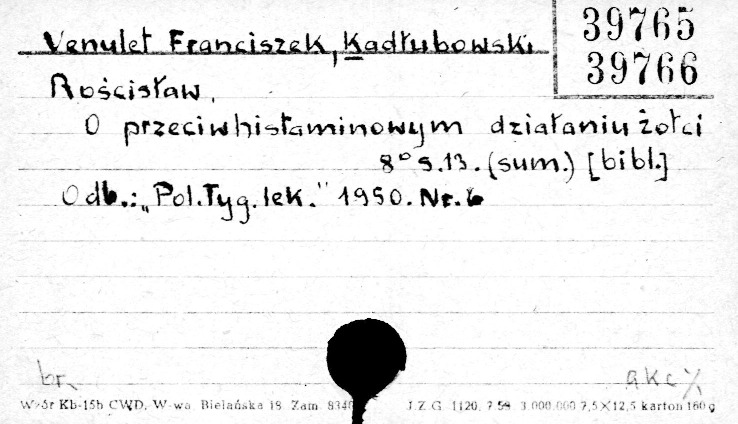 39765
39766
Venulet Franciszek, Kadłubowski
Rościsław.
O przeciwhistaminowym działaniu żołci
8° s.13. (sum.) [bibl.]
Odb.: „Pol.Tyg.lek." 1950. Nr.6
br. akc
Wzór Kb-15b CWD, W-wa, Bielańska 18. Zam. J.Z.G. 1120. 7.59 3.000.000 7,5×12,5 karton 160 g